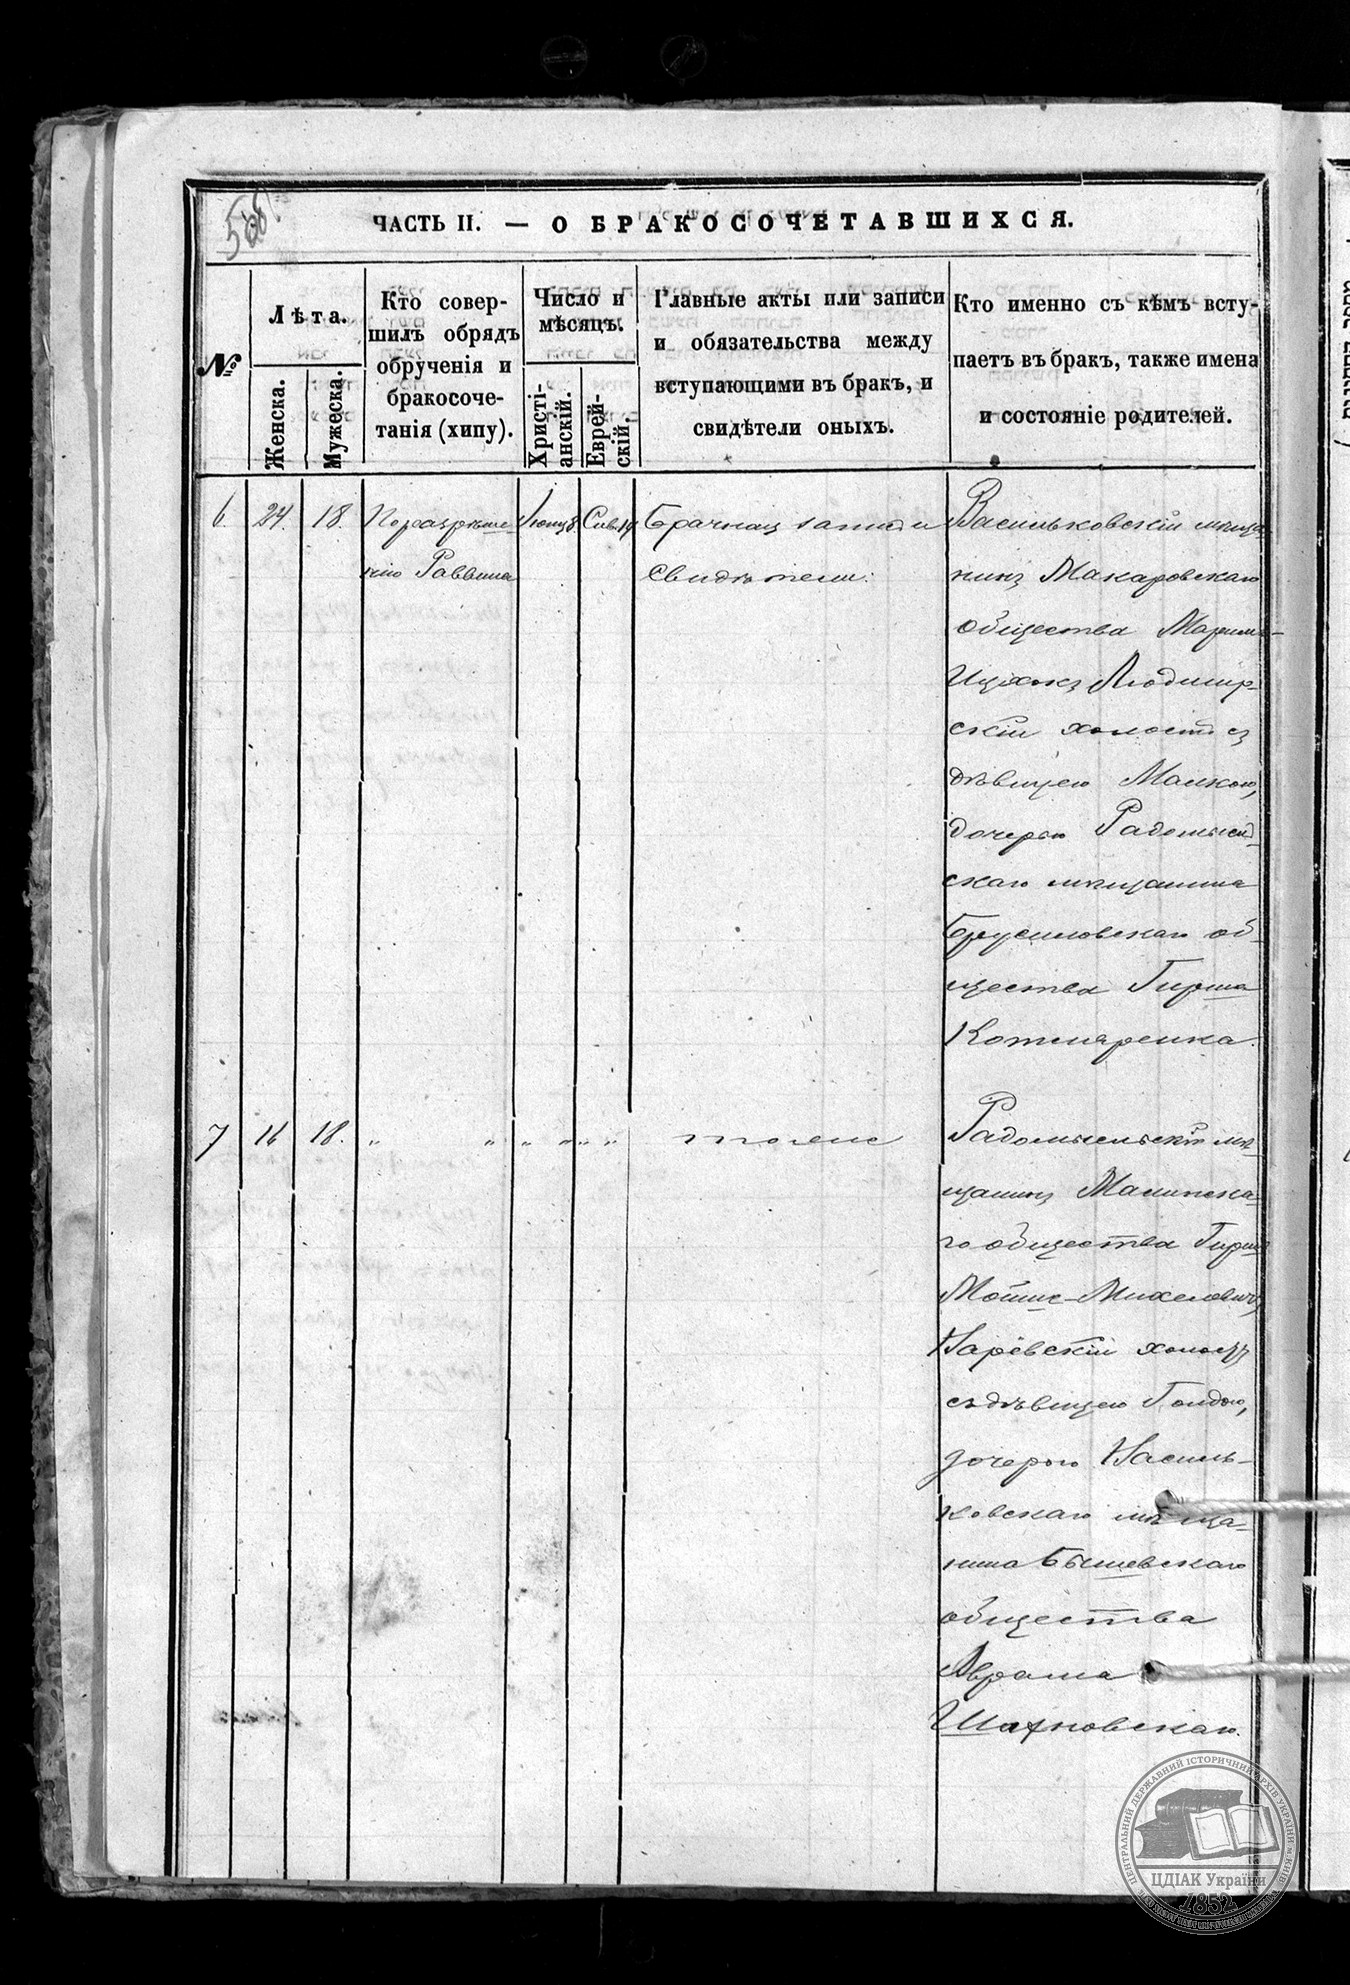 ЧАСТЬ II. — О БРАКОСОЧЕТАВШИХСЯ.
№
Лѣта.
Женска.
Мужеска.
Кто совер-
шилъ обрядъ
обрученія и
бракосоче-
танія (хипу).
Число и
мѣсяцъ.
Христі-
анскій.
Еврей-
скій.
Главные акты или записи
и обязательства между
вступающими въ бракъ, и
свидѣтели оныхъ.
Кто именно съ кѣмъ всту-
паетъ въ бракъ, также имена
и состояніе родителей.
6. 24. 18.
По разрѣше
нію Раввина
Сив. 14
Брачная запись и
свидѣтели.
Васильковскій мѣща
нинъ Макаровскаго
общества
Ицхокъ
скій холостъ съ
дѣвицею Малкою,
дочерью Радомысл-
скаго мѣщанина
Брусиловскаго об-
щества Гирша
Котляренка.
7 16 18. „ „ „ „ „ „
тоже
Радомысльскій мѣ-
щанинъ Малинска-
го общества Гирш
Мойше-Михелевичъ
Наревскій холостъ
съ дѣвицею Голдою,
дочерью Василь-
ковскаго мѣща-
нина Бышевскаго
общества
Аврама
Шахновскаго.
ЦЕНТРАЛЬНИЙ ДЕРЖАВНИЙ ІСТОРИЧНИЙ АРХІВ УКРАЇНИ М.КИЇВ
ЦДІАК України
1852